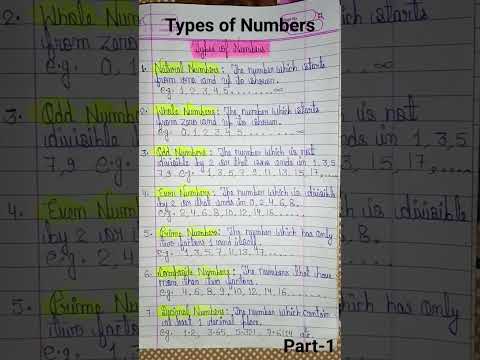 Types of Numbers
Types of Numbers
1. Natural Numbers: The number which starts
from one and up to
e.g. 1, 2, 3, 4, 5 ......... ∞
2. Whole Numbers: The number which starts
from zero and up to
e.g. 0, 1, 2, 3, 4, 5 ......... ∞
3. Odd Numbers: The number which is not
divisible by 2 or that ends in 1, 3, 5
7, 9. e.g. 1, 3, 5, 7, 9, 11, 13, 15, 17, .....
4. Even Numbers: The number which is divisible
by 2 or that ends in 0, 2, 4, 6, 8.
e.g. 2, 4, 6, 8, 10, 12, 14, 16 ......
5. Prime Numbers: The number which has only
two factors 1 and itself.
e.g. 1, 3, 5, 7, 11, 13, 17 ......
6. Composite Numbers: The numbers that have
more than two factors.
e.g. 4, 6, 8, 9, 10, 12, 14, 16 ......
7. Decimal Numbers: The number which contain
at least 1 decimal place.
e.g. 1.2, 3.65, etc.
Part-1
2. Whole Num
from zero
e.g. 0, 1
3. Odd Num
divisible
7, 9 e.g.
4. Even Num
by 2 or
e.g. 2, 4
5. Prime Nu
two factors
starts
∞
is not
1, 3, 5
17, ....
is divisible
8.
which has only